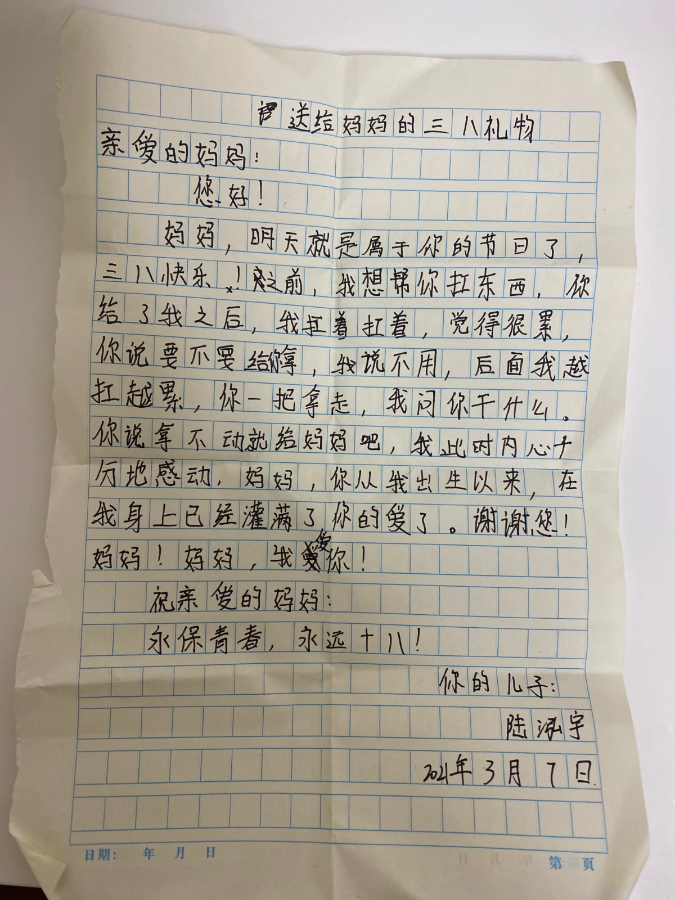 送给妈妈的三八礼物
亲爱的妈妈：
您好！
妈妈，明天就是属于你的节日了，
三八快乐！之前，我想帮你扛东西，你
给了我之后，我扛着扛着，觉得很累，
你说要不要给你拿，我说不用，后面我越
扛越累，你一把拿走，我问你干什么。
你说拿不动就给妈妈吧，我此时内心十
分地感动，妈妈，你从我出生以来，在
我身上已经灌满了你的爱了。谢谢您！
妈妈！妈妈，我爱你！
祝亲爱的妈妈：
永保青春，永远十八！
你的儿子：
陆泓宇
2021年3月7日
日期： 年 月 日 第 页